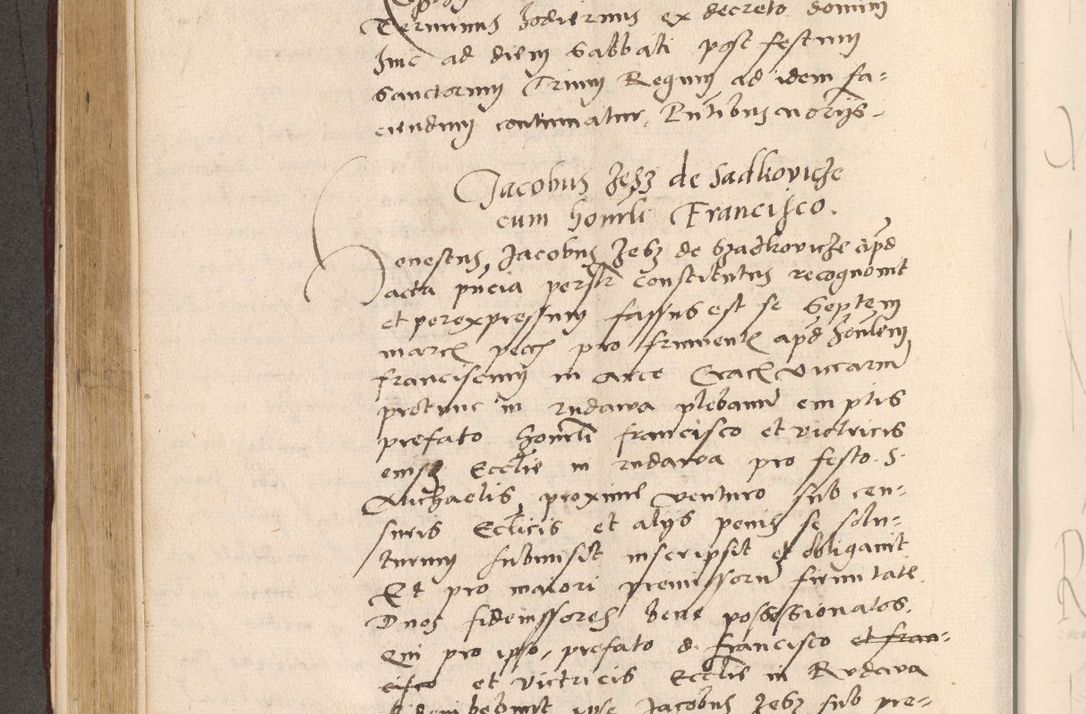 Terminus hodiernus ex decreto domini
huic ad diem Sabbati post festum
Sanctorum Trium Regum ad idem fa=
ciendum continuatur, Pntibus notarijs.
Jacobus Jesz de Sadkovicze
cum honorabili Francisco.
Honestus, Jacobus Jesz de Szadkovicze apd
acta pncia personaliter constitutus recognovit
et per expressum fassus est se Septem
marcas pecc pro frumentis apd honorabilem
franciscum in arce Crac Vicarium
protunc in rudawa plebanum emptis
prefato honorabili francisco et victricis
eiusq Ecclie in rudawa pro festo S.
Michaelis, proxime venturo sub cen=
suris Ecclicis et alijs penis se solu=
turum submisit inscripsit et obligavit
Et pro maiori premissorum firmitate
Duos fideiussores bene possessionatos.
Qui pro ipso, prefato d. Francisco et fran=
cisco et victricis Ecclie in Rudawa
ipse Jacobus Jesz sub pre=